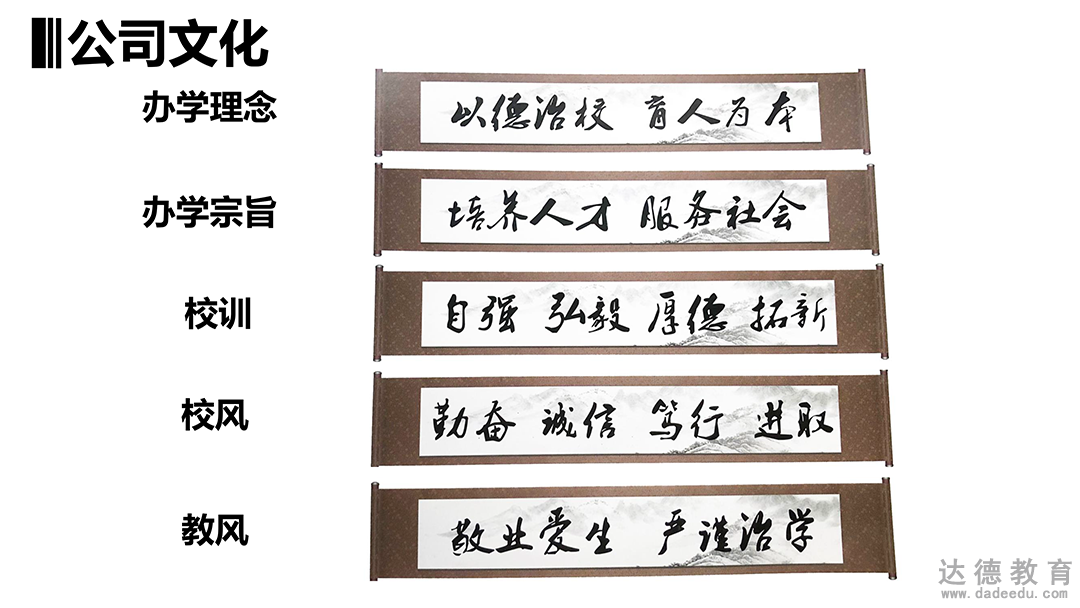 公司文化
办学理念
以德治校 育人为本
办学宗旨
培养人才 服务社会
校训
自强 弘毅 厚德 拓新
校风
勤奋 诚信 笃行 进取
教风
敬业爱生 严谨治学
达德教育
www.dadeedu.com